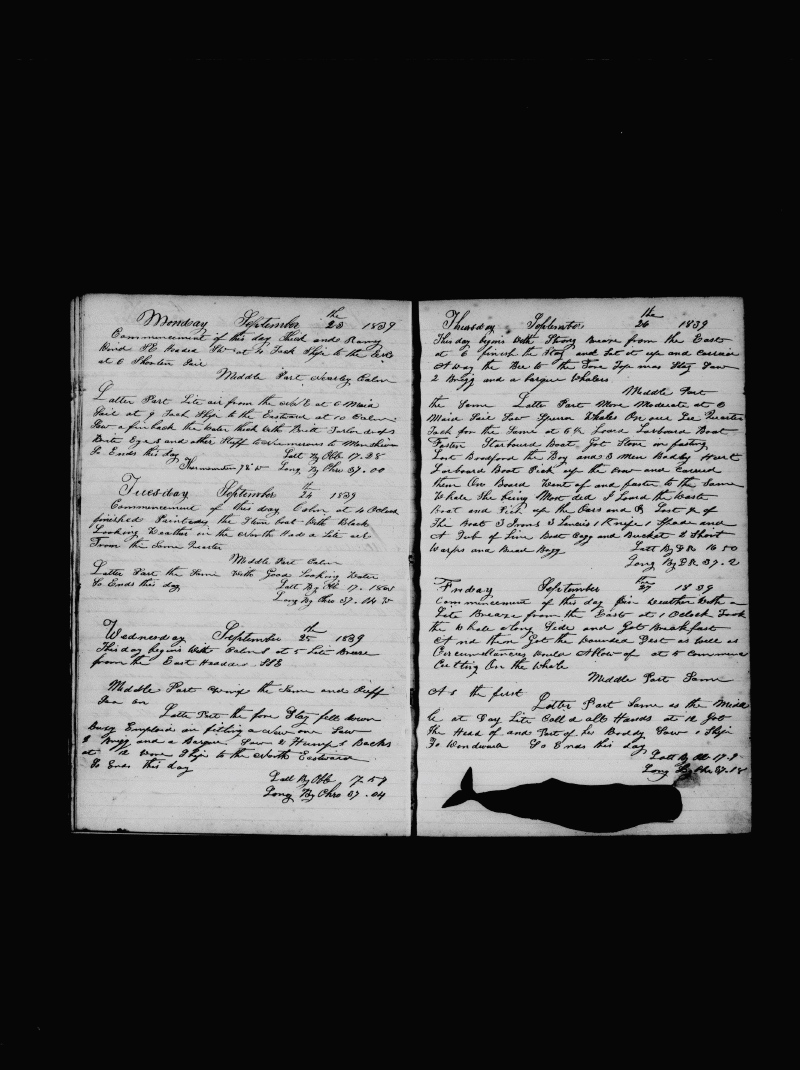 Monday September the 23 1839
Commencement of this day Thick and Rainy
Wind SE Headed SW at 4 Tack Ship to the
at 6 Shorten Sail
Middle Part Nearly Calm
Latter Part Lite air from the at 6 Maid
Sail at 9 Tack Ship to the Eastward at 10 Calm
Saw a finback the Water thick With
and other Stuff to Numerous to Menshion
So Ends this day Latt By Ob 17.28
Thermometer 78 Long By Chro 37.00
Tuesday September th 24 1839
Commencement of this day Calm at 4 Oclock
finished Painting the Stern boat With Black
Looking Weather in the North Had a Lite
From the Same Quarter
Middle Part Calm
Latter Part the Same With Good Looking Water
So Ends this day Latt By Ob 17.18
Long By Chro 37.04 W
Wednesday September th 25 1839
This day begins With Calms at 5 Lite Breese
from the East Headded SSE
Middle Part the Same and Ruff
Sea on
Latter Part the fore Stay fell down
Busy Employed in fitting a New one Saw
Brigg and a Barque Saw 2 Hump Backs
at 12 Ship to the North Eastward
So Ends this day
Latt By Ob 17.59
Long By Chro 37.04
Thursday September the 26 1839
This day begins With Strong Breese from the East
at 6 finish the Stay and Set it up and Carried
Away the Bee to the Fore Top mas Stay Saw
2 Brigg and a barque Whalers
Middle Part
the Same Latter Part More Moderate at 6
Maid Sail Saw Sperm Whales On our Lee Quarter
Tack for the Same at 6½ Lowed Larboard Boat
Fasten Starboard Boat Got Stove in fasting
Lost Bradford the Boy and 3 Men Baddly Hurt
Larboard Boat Pick up the Crew and Carried
them On Board Went of and fasten to the Same
Whale She being Most ded I Lowed the Waste
Boat and Pick up the Oars and Lost of
The Boat 3 Irons 3 Lances 1 Knife 1 Spade and
A Tub of Line Boat Bagg and Bucket 2 Short
Warps and Bread Bagg Latt By D R 16 50
Long By D R 37.2
Friday September the 27 1839
Commencement of this day fair Weather With a
Lite Breaze from the East at 1 Oclock Took
the Whale along Side and Got Breakfast
And then Got the Wounded Dest as Well as
Circumstances Would Allow of at 5 Commence
Cutting On the Whale
Middle Part Same
As the first
Latter Part Same as the Midd
le at Day Lite Calld all Hands at 12 Got
the Head of and Part of her Boddy Saw 1 Ship
To Windward So Ends this day
Latt By Ob 17.9
Long By Chr 37.18